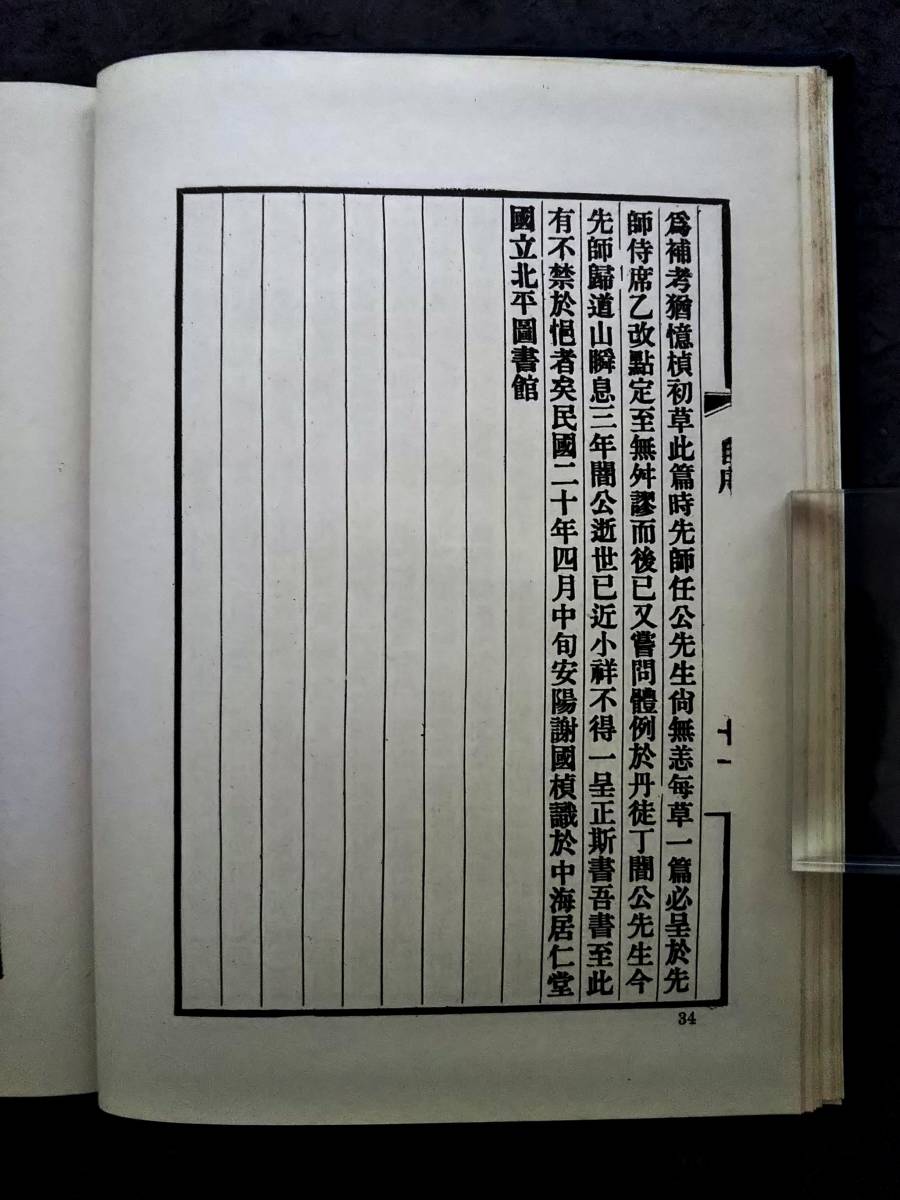 爲補考猶憶楨初草此篇時先師任公先生尙無恙每草一篇必呈於先
師侍席乙改點定至無舛謬而後已又嘗問體例於丹徒丁闇公先生今
先師歸道山瞬息三年闇公逝世已近小祥不得一呈正斯書吾書至此
有不禁於悒者矣民國二十年四月中旬安陽謝國楨識於中海居仁堂
國立北平圖書館
十一
34